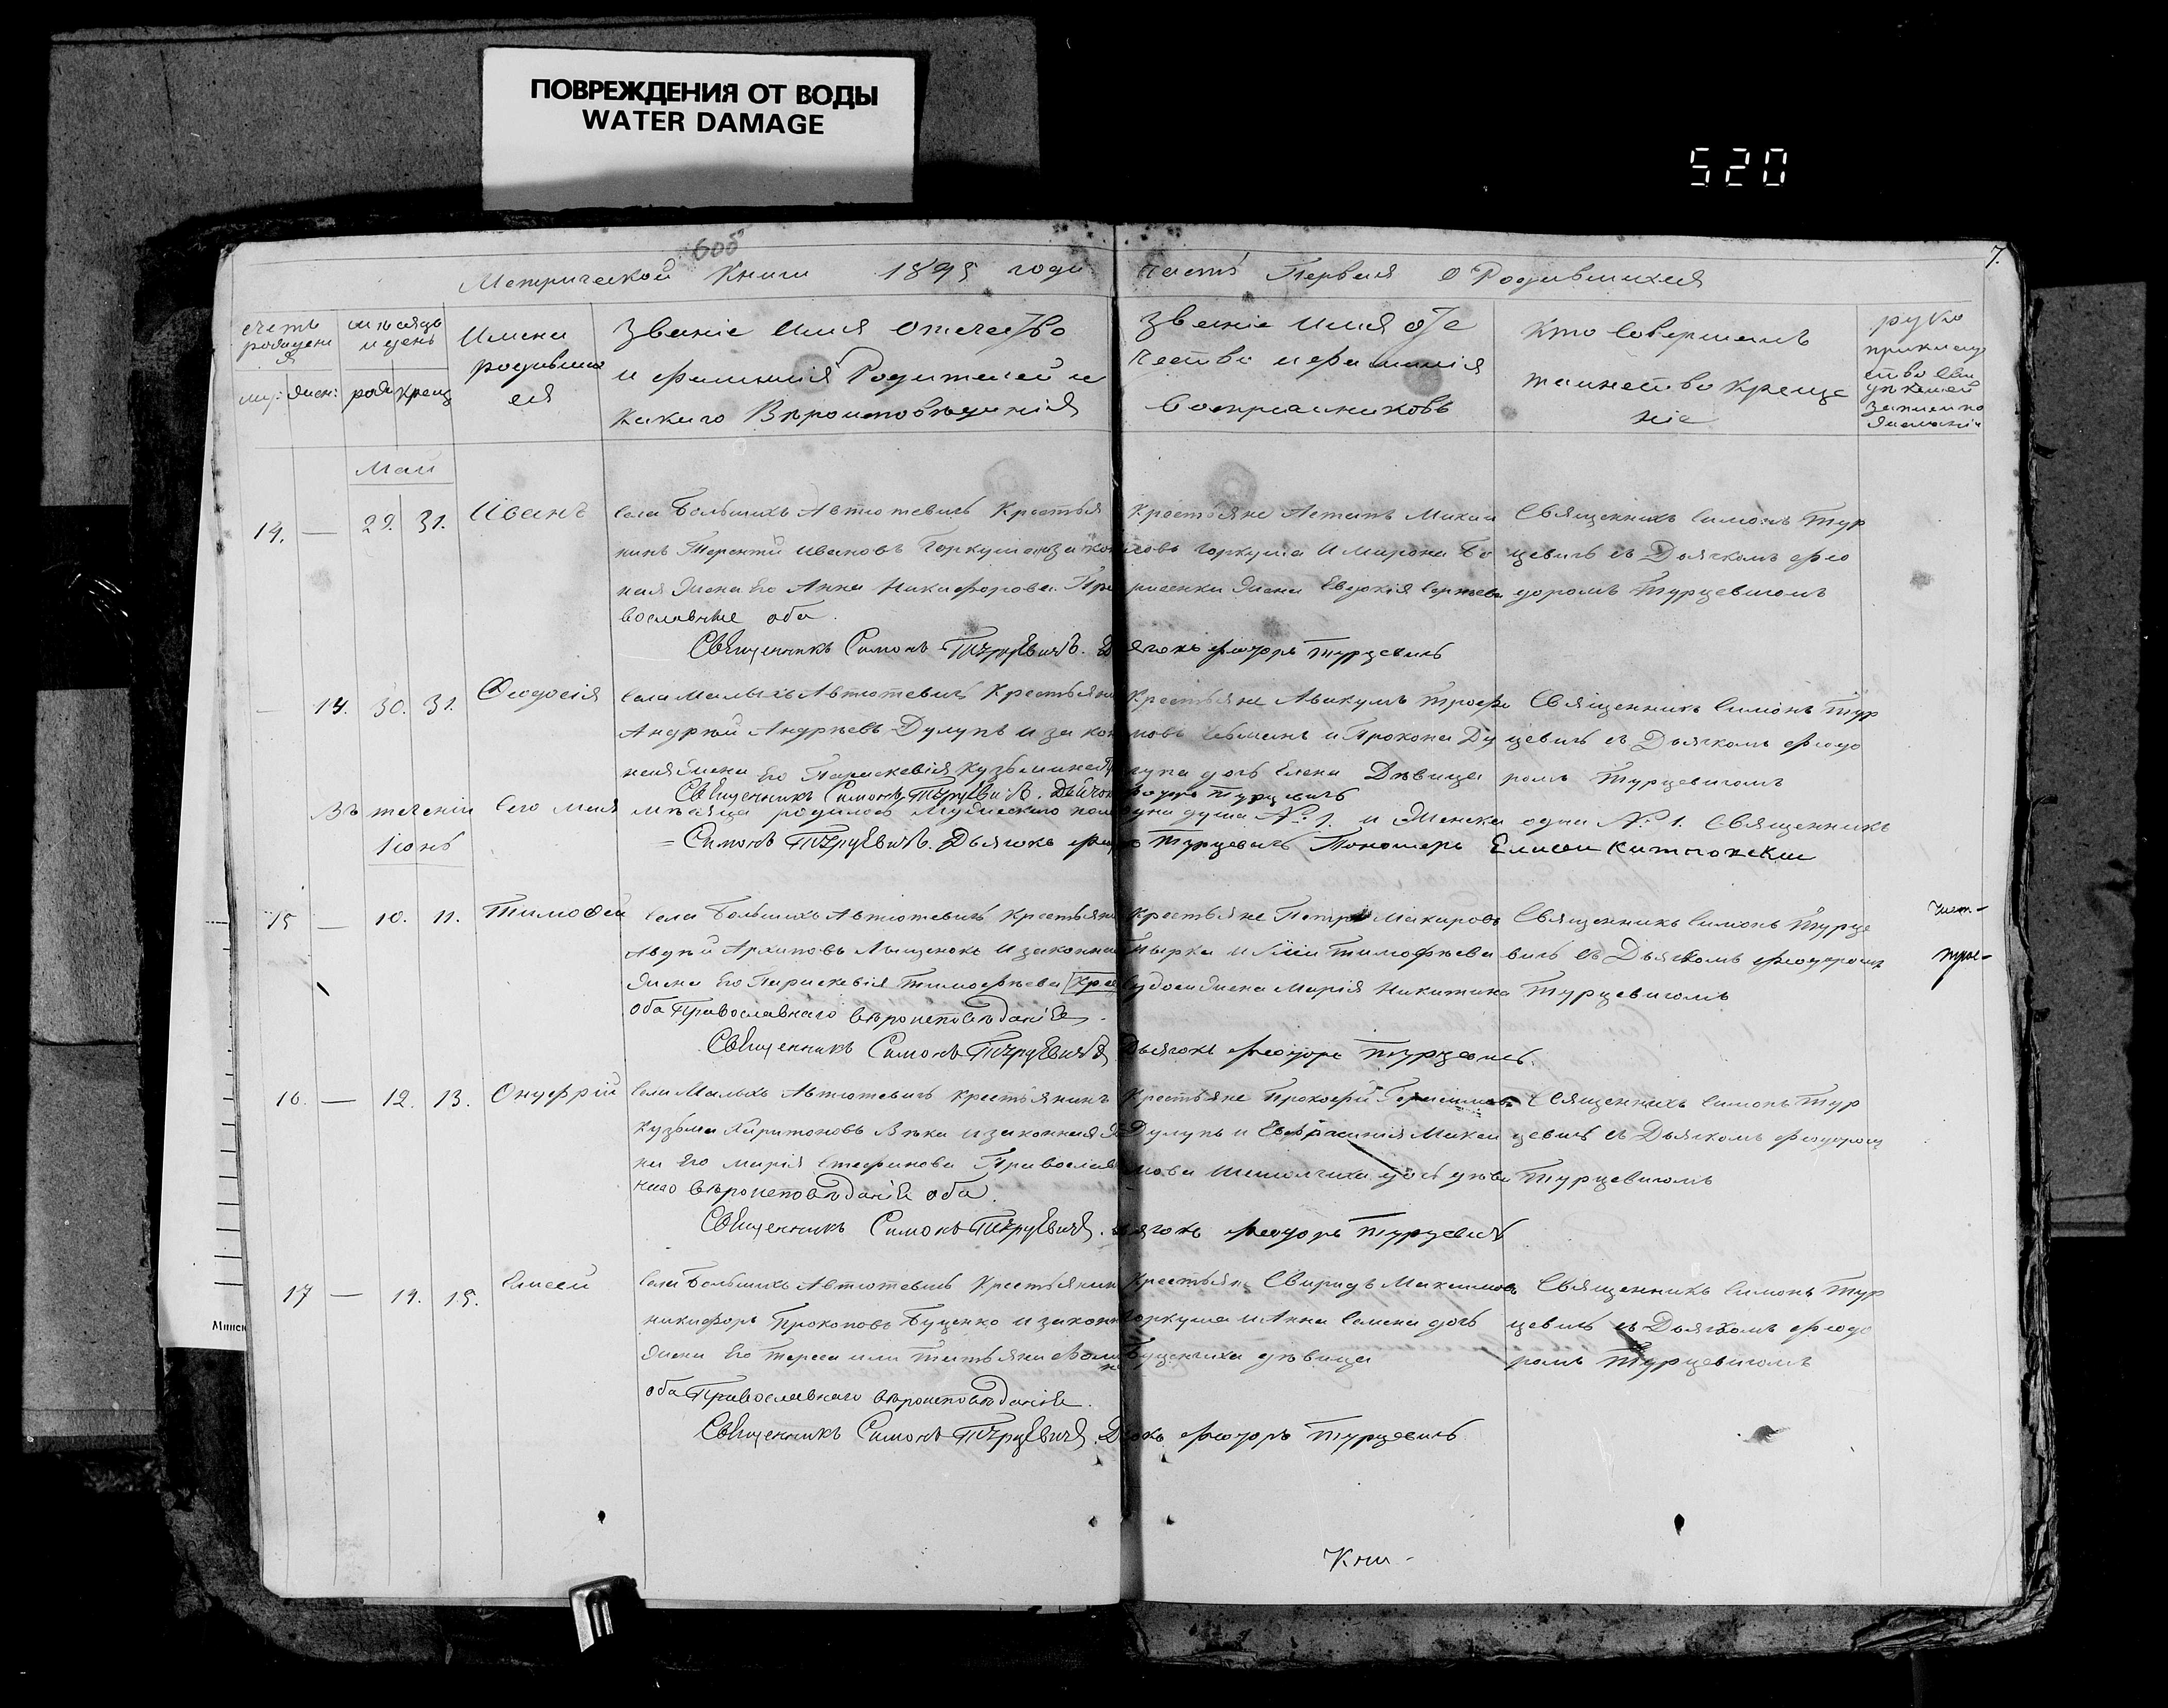 ПОВРЕЖДЕНИЯ ОТ ВОДЫ
WATER DAMAGE
520
7.
Метрической Книги 1895 года часть Первая о Родившихся
Имена родившихся
Званіе Имя Отечество и фамилія Родителей и какаго Вѣроисповѣданія
Званіе Имя Отечество и фамилія Воспріемниковъ
Кто Совершалъ таинство Креще
ніе
Май
14. — 29. 31. Иванъ
Села Большихъ Автютевичъ Крестья
нинъ Терентій Ивановъ Горкуша и закон
ная Жена Его Анна Никифорова Пра
вославные оба.
Крестьяне
Горкуша И Мирона Бо
рисенки Жена Евдокія
Священникъ Симонъ Тур
цевичъ съ Дьячкомъ Фео
доромъ Турцевичомъ
Священникъ Симонъ Турцевичъ. Дьячокъ Феодоръ Турцевичъ
— 14. 30. 31. Феодосія
Села Малыхъ Автютевичъ Крестьянин
Андрей Андреевъ Дулупъ и закон
ная Жена Его Параскевія Кузьмина
Крестьяне Авакумъ Трофи
мовъ и Прокопа Ду
лупа дочь Елена Дѣвица
Священникъ Симонъ Тур
цевичъ съ Дьячкомъ Феодо
ромъ Турцевичомъ
Священникъ Симонъ Турцевичъ. Дьячокъ Феодоръ Турцевичъ
Въ теченіи Сего Мая мѣсяца родилось Мужескаго пола одна душа № 1. и Женска одна № 1. Священникъ
Симонъ Турцевичъ. Дьячокъ Феодоръ Турцевичъ Пономарь Елисей
Іюнь
15 — 10. 11. Тимофей
Села Большихъ Автютевичъ Крестьянин
Архиповъ и законная
Жена Его Параскевія Тимофеева
оба Православнаго вѣроисповѣданія.
Крестьяне Петръ Макаровъ
Пырка и Тимофеева
Жена Марія Никитина
Священникъ Симонъ Турце
вичъ съ Дьячкомъ Феодоромъ
Турцевичомъ
Священникъ Симонъ Турцевичъ Дьячокъ Феодоръ Турцевичъ.
16. — 12. 13. Онуфрій
Села Малыхъ Автютевичъ Крестьянинъ
Кузьма Харитоновъ и законная Же
на Его Марія Стефанова Православ
наго вѣроисповѣданія оба.
Крестьяне Прокофій Герасимовъ
Дулупъ и
Священникъ Симонъ Тур
цевичъ съ Дьячкомъ Феодоромъ
Турцевичомъ
Священникъ Симонъ Турцевичъ. Дьячокъ Феодоръ Турцевичъ
17 — 14. 15. Елисей
Села Большихъ Автютевичъ Крестьянин
Никифоръ Прокоповъ Буценко и законн
Жена Его Тереса или Татьяна
оба Православнаго вѣроисповѣданія.
Крестьяне Свиридъ Максимовъ
Горкуша и Анна Семена дочь
Буценчиха дѣвица
Священникъ Симонъ Тур
цевичъ съ Дьячкомъ Феодо
ромъ Турцевичомъ
Священникъ Симонъ Турцевичъ. Дьячокъ Феодоръ Турцевичъ
Кни-